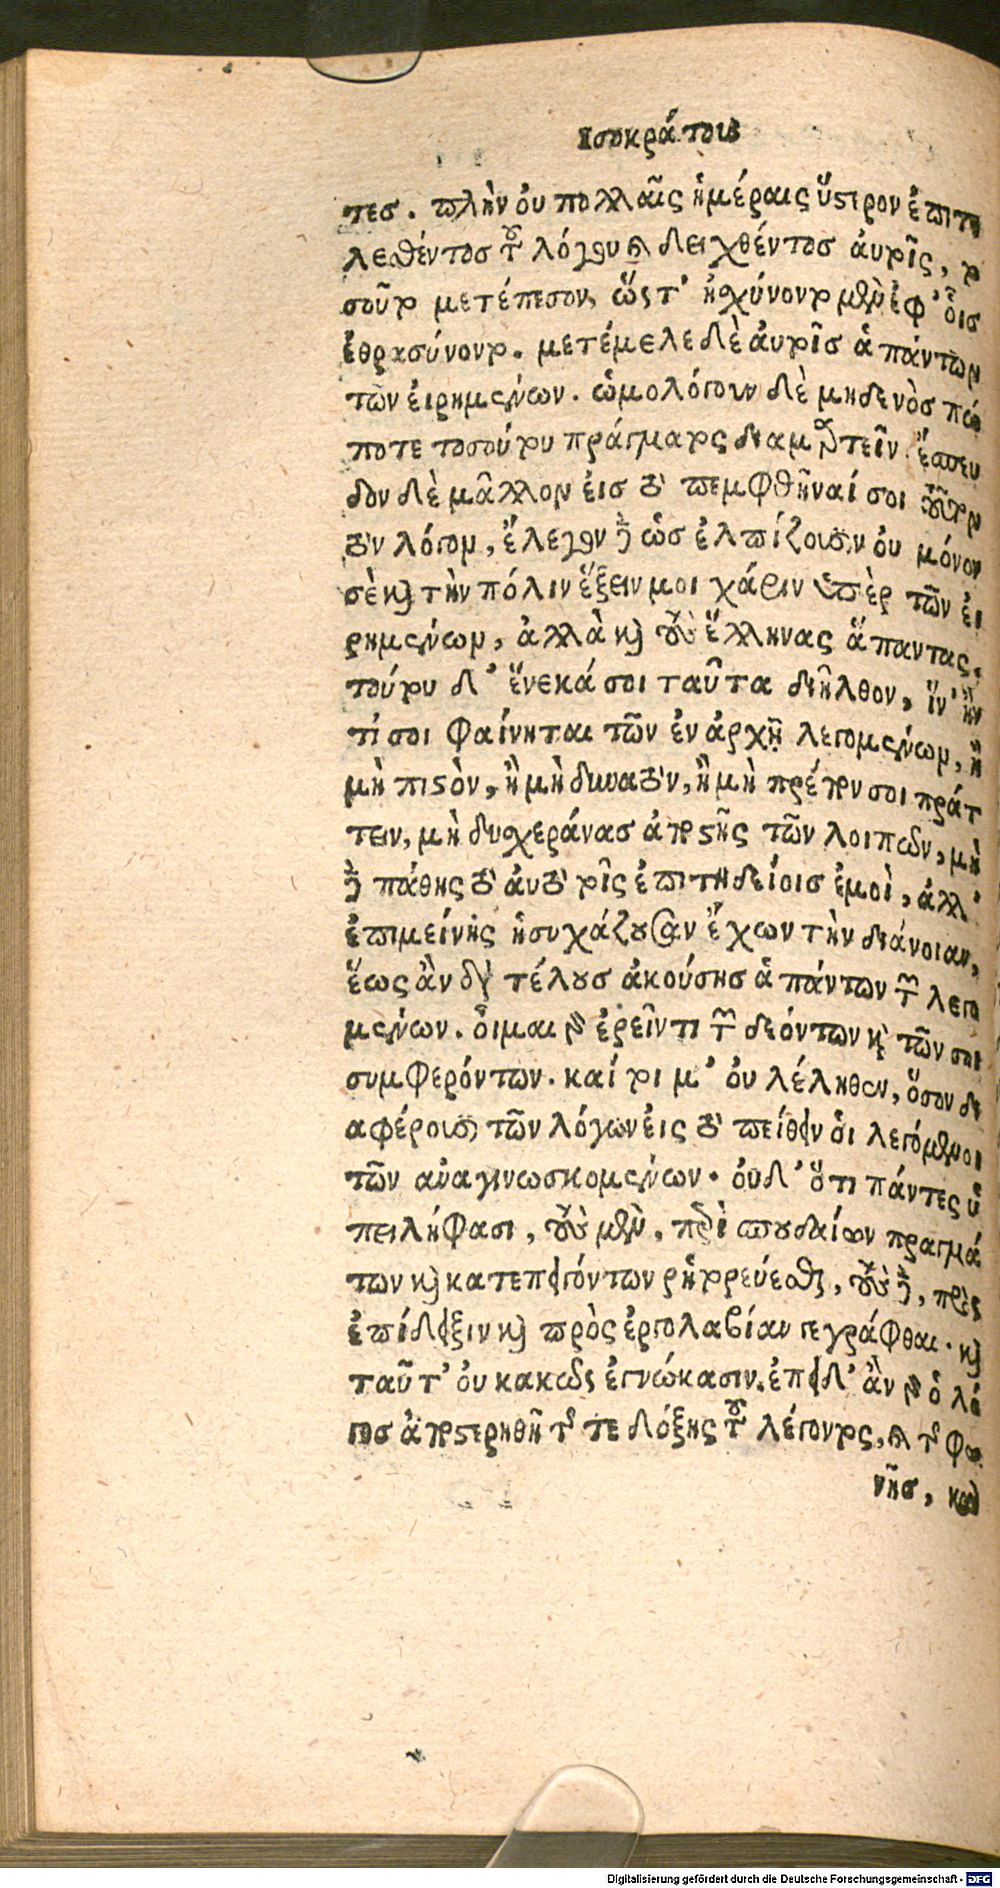 Ισοκράτους
τες. πλὴν οὐ πολλαῖς ἡμέραις ὕστερον ἐπιτε
λεσθέντος τοῦ λόγου καὶ δειχθέντος αὐτοῖς, το
σοῦτο μετέπεσον, ὥστ' ᾐσχύνοντο μὲν ἐφ' οἷς
ἐθρασύνοντο. μετέμελε δὲ αὐτοῖς ἁπάντων
τῶν εἰρημένων. ὡμολόγουν δὲ μηδενὸς πώ
ποτε τοσούτου πράγματος διαμαρτεῖν. ἔσπευ
δον δὲ μᾶλλον εἰς τὸ πεμφθῆναί σοι τοῦτον
τὸν λόγον, ἔλεγον δὲ ὡς ἐλπίζουσιν οὐ μόνον
σὲ καὶ τὴν πόλιν ἕξειν μοι χάριν ὑπὲρ τῶν εἰ
ρημένων, ἀλλὰ καὶ τοὺς ἕλληνας ἅπαντας.
τούτου δ' ἕνεκά σοι ταῦτα διῆλθον, ἵν' ἤν
τί σοι φαίνηται τῶν ἐν ἀρχῇ λεγομένων, ἢ
μὴ πιστὸν, ἢ μὴ δυνατὸν, ἢ μὴ πρέπον σοι πράτ
τειν, μὴ δυσχεράνας ἀποστῇς τῶν λοιπῶν, μὴ
δὲ πάθῃς τὸ αὐτὸ τοῖς ἐπιτηδείοις ἐμοὶ, ἀλλ'
ἐπιμείνῃς ἡσυχάζουσαν ἔχων τὴν διάνοιαν,
ἕως ἂν διὰ τέλους ἀκούσῃς ἁπάντων τῶν λεγο
μένων. οἶμαι γὰρ ἐρεῖν τι τῶν δεόντων καὶ τῶν σοι
συμφερόντων. καίτοι μ' οὐ λέληθεν, ὅσον δι
αφέρουσι τῶν λόγων εἰς τὸ πείθειν οἱ λεγόμενοι
τῶν ἀναγινωσκομένων. οὐδ' ὅτι πάντες ὑ
πειλήφασι, τοὺς μὲν, περὶ σπουδαίων πραγμά
των καὶ κατεπειγόντων ῥητορεύεσθαι, τοὺς δὲ, πρὸς
ἐπίδειξιν καὶ πρὸς ἐργολαβίαν γεγράφθαι. καὶ
ταῦτ' οὐ κακῶς ἐγνώκασιν. ἐπειδ' ἂν γὰρ ὁ λό
γος ἀποστερηθῇ τῆς τε δόξης τοῦ λέγοντος, καὶ τῆς φω
νῆς, καὶ
Digitalisierung gefördert durch die Deutsche Forschungsgemeinschaft - DFG